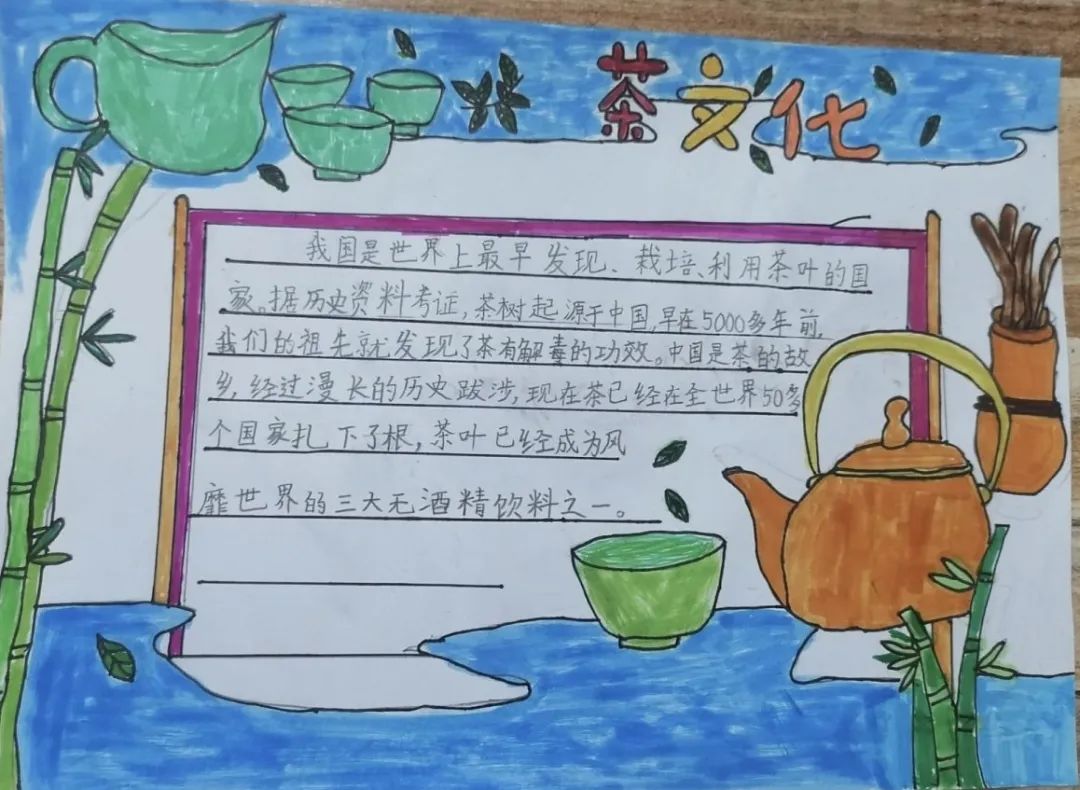 茶文化
我国是世界上最早发现、栽培、利用茶叶的国
家。据历史资料考证,茶树起源于中国,早在5000多年前,
我们的祖先就发现了茶有解毒的功效。中国是茶的故
乡,经过漫长的历史跋涉,现在茶已经在全世界50多
个国家扎下了根,茶叶已经成为风
靡世界的三大无酒精饮料之一。